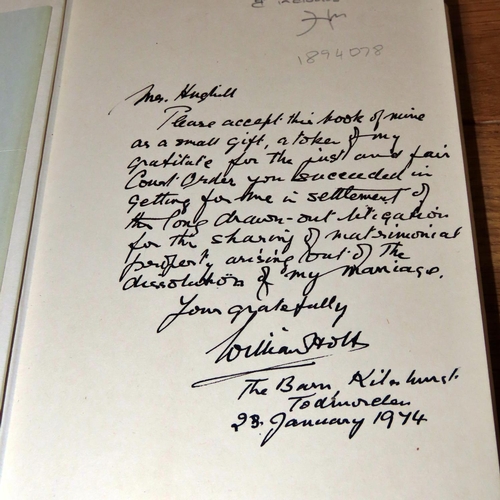 1894078
Mrs. Hughill
Please accept this book of mine
as a small gift, a token of my
gratitude for the just and fair
Court Order you succeeded in
getting for me in settlement of
the long drawn-out litigation
for the sharing of matrimonial
property arising out of the
dissolution of my marriage.
Yours gratefully
William Holt
The Barn, Kilnhurst
Todmorden
23. January 1974